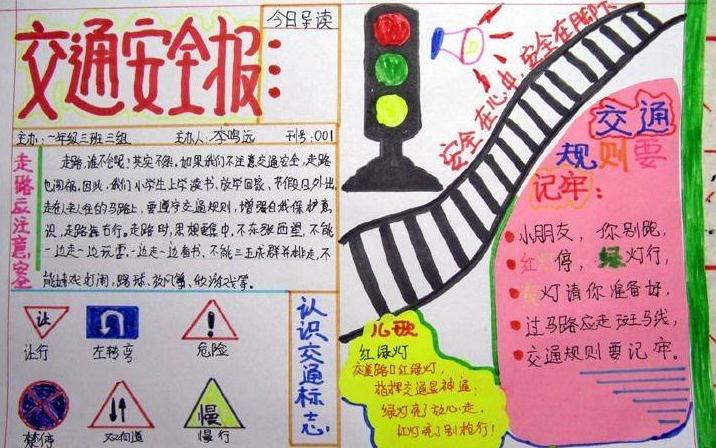 交通安全报
今日导读
主办:一年级三班三组 主办人:李鸣远 刊号:001
走路应注意安全
走路,谁不会呢?其实不然。如果我们不注意交通安全,走路
也闯祸。因此,我们小学生上学读书,放学回家,节假日外出,
走在人来人往的马路上,要遵守交通规则,增强自我保护意
识,走路靠右行。走路时,思想要集中,不东张西望,不能
一边走一边玩耍,一边走一边看书,不能三五成群并排走,不
能嬉戏打闹,踢球、放风筝、做游戏等。
让
让行
左转弯
危险
禁停
双向道
慢
慢行
认识交通标志
安全在心中,安全在脚下
儿歌
红绿灯
交通路口红绿灯,
指挥交通显神通;
绿灯亮了放心走,
红灯亮了别抢行!
交通
规则要
记牢:
小朋友,你别跑,
红灯停,绿灯行,
灯请你准备好,
过马路应走斑马线,
交通规则要记牢。